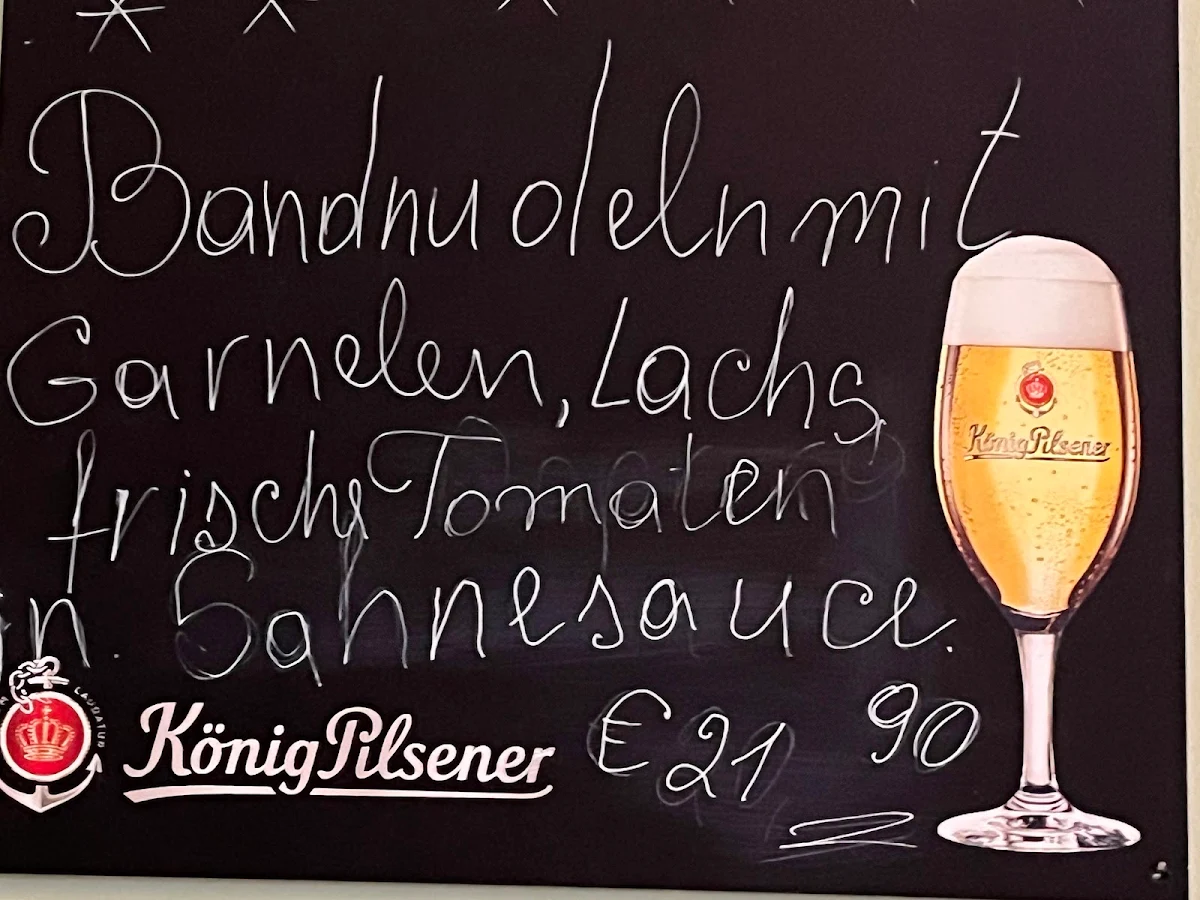 Bandnudeln mit
Garnelen, Lachs,
frische Tomaten
in Sahnesauce.
€ 21,90
König Pilsener
LAUDATUR
König Pilsener